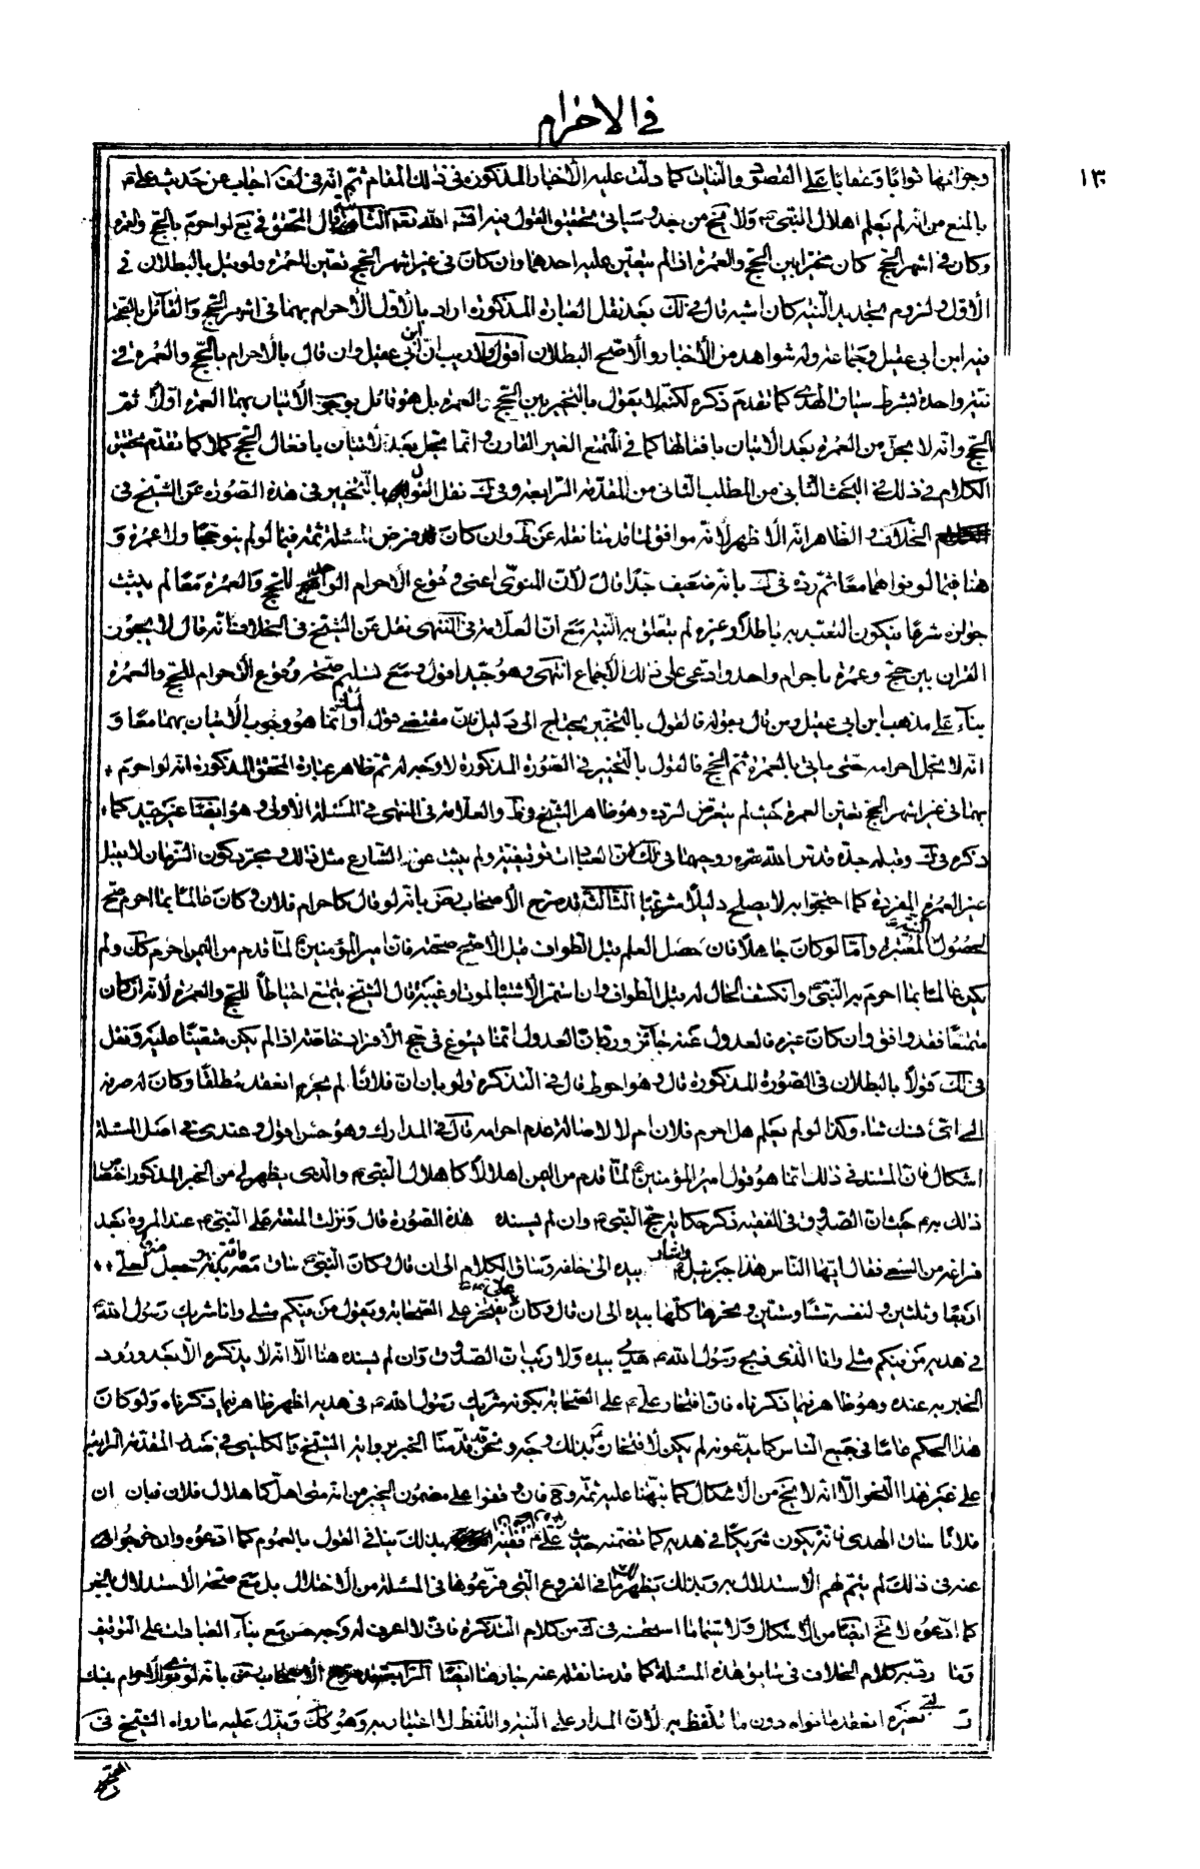 في الاحرام
١٣
وجزائها ثوابا وعقابا على القصود والنيات كما دلت عليه الأخبار المذكورة في ذلك المقام ثم انه في لف اجاب عن حديث علي ع
بالمنع من انه لم يعلم اهلال النبي ص ولا يخ من بعد وسيأتي تحقيق القول فيه انشاء الله تعالى الثاني قال المحقق في يع لو احرم بالحج والعمرة
وكان في اشهر الحج كان مخيرا بين الحج والعمرة اذا لم يتعين عليه احدهما وان كان في غير اشهر الحج تعين للعمرة ولو قيل بالبطلان في
الأول ولزوم تجديد النية كان اشبه قال في لك بعد نقل العبارة المذكورة اراد بالأول الأحرام بهما في اشهر الحج والقائل بالتخير
فيه ابن ابي عقيل وجماعة وله شواهد من الأخبار والأصح البطلان اقول ولا ريب ان ابن ابي عقيل وان قال بالاحرام بالحج والعمرة في
نية واحدة بشرط سياق الهدي كما تقدم ذكره لكنه لا يقول بالتخيير بين الحج والعمرة بل هو قائل بوجوب الأتيان بهما العمرة اولا ثم
الحج وانه لا يحل من العمرة بعد الاتيان بافعالها كما في المتمتع الغير القارن وانما يحل بعد الاتيان بافعال الحج كملا كما تقدم تحقيق
الكلام في ذلك في البحث الثاني من المطلب الثاني من المقدمة الرابعة وفي ك نقل القول بالتخيير في هذه الصورة عن الشيخ في
الخلاف والظاهر انه الأظهر لأنه موافق لما قدمنا نقله عن ط وان كان قد فرض المسئلة ثمة فيما لو لم ينو حجا ولا عمرة و
هنا فيما لو نواهما معا ثم رده في ك بانه ضعيف جدا قال لأن المنوي اعني وقوع الأحرام الواحد للحج والعمرة معا لم يثبت
جوازه شرعا فيكون التعبد به باطلا وغيره لم يتعلق به النية مع ان العلامة في المنتهى نقل عن الشيخ في الخلاف انه قال لا يجوز
القران بين حج وعمرة باحرام واحد وادعى على ذلك الأجماع انتهى وهو جيد اقول ومع تسليم صحة وقوع الأحرام للحج والعمرة
بناء على مذهب ابن ابي عقيل ومن قال بقوله فالقول بالتخيير يحتاج الى دليل فان مقتضى قول اولئك انما هو وجوب الأتيان بهما معا و
انه لا يحل احرامه حتى يأتي بالعمرة ثم الحج فالقول بالتخيير في الصورة المذكورة لا وجه له ثم ظاهر عبارة المحقق المذكورة انه لو احرم
بهما في غير اشهر الحج تعين العمرة حيث لم يتعرض لرده وهو ظاهر الشيخ في ط والعلامة في المنتهى في المسئلة الأولى وهو ايضا غير جيد كما
ذكره في ك وقبله جده قدس الله سره روحيهما في لك لان العبادات توقيفية ولم يثبت عن الشارع مثل ذلك ومجرد كون الزمان لا يقبل
غير العمرة المفردة كما احتجوا به لا يصلح دليلا شرعيا الثالث قد صرح الأصحاب رض بانه لو قال كاحرام فلان وكان عالما بما احرم صح
لحصول النية المعتبرة واما لو كان جاهلا فان حصل العلم قبل الطواف قيل الاصح صحته فان امير المؤمنين ع لما قدم من اليمن احرم كذلك ولم
يكن عالما بما احرم به النبي ص وان انكشف الحال له قبل الطواف وان استمر الاشتباه لموت او غيبة قال الشيخ يتمتع احتياطا للحج والعمرة لأنه ان كان
متمتعا فقد وافق وان كان غيره فالعدول عنه جائز ورد بان العدول انما يسوغ في حج الأفراد خاصة اذا لم يكن متعينا عليه ونقل
في لك قولا بالبطلان في الصورة المذكورة قال وهو احوط قال في التذكرة ولو بان ان فلانا لم يحرم انعقد مطلقا وكان له صرفه
الى اي نسك شاء وكذا لو لم يعلم هل احرم فلان ام لا لاصالة عدم احرامه قال في المدارك وهو حسن اقول وعندي في اصل المسئلة
اشكال فان المستند في ذلك انما هو قول امير المؤمنين ع لما قدم من اليمن اهلالا كاهلال النبي ص والذي يظهر لي من الخبر المذكور اختصاص
ذلك به ع حيث ان الصدوق في الفقيه ذكر حكاية حج النبي ص وان لم يسنده هذه الصورة قال ونزلت المتعة على النبي ص عند المروة بعد
فراغه من السعي فقال ايها الناس هذا جبرئيل واشار بيده الى خلفه وساق الكلام الى ان قال وكان النبي ص ساق معه مائة بدنة جعل لعلي ع منها
اربعا وثلثين ولنفسه ستا وستين ونحرها كلها بيده الى ان قال وكان علي ع يفتخر على الصحابة ويقول من فيكم مثلي وانا شريك رسول الله ص
في هديه من فيكم مثلي وانا الذي ذبح رسول الله ص هديي بيده ولا ريب ان الصدوق وان لم يسنده هنا الا انه لا يذكره الا بعد ورود
الخبر به عنده وهو ظاهر فيما ذكرناه فان افتخار علي ع على الصحابة بكونه شريك رسول الله ص في هديه اظهر ظاهر فيما ذكرناه ولو كان
هذا الحكم عاما في جميع الناس كما يدعونه لم يكن لافتخاره ع بذلك وجه ونحن قد قدمنا الخبر برواية الشيخ والكليني في صدر المقدمة الرابعة
على غير هذا النحو الا انه لا يخ من الأشكال كما نبهنا عليه ثمة وح فان وقفوا على مضمون الخبر من انه متى اهل كاهلال فلان فبان ان
فلانا ساق الهدي فانه يكون شريكا في هديه كما تضمنه حديث علي ع بذلك ينافي القول بالعموم كما ادعوه وان خرجوا
عنه في ذلك لم يتم لهم الأستدلال به وبذلك يظهر ما في الفروع التي فرعوها في المسئلة من الأختلال بل مع صحة الاستدلال بالخبر
كما ادعوه لا يخ ايضا من الأشكال ولا سيما ما استحسنه في ك من كلام التذكرة فاني لا اعرف له وجه حسن مع بناء العبادات على التوقيف
وما رد به كلام الخلاف في سابق هذه المسئلة كما قدمنا نقله عنه جار هنا ايضا الرابع صرح الأصحاب رض بانه لو نوى الاحرام بنسك
ولبى بغيره انعقد ما نواه دون ما تلفظ به لأن المدار على النية واللفظ لا اعتبار به وهو كذلك ويدل عليه ما رواه الشيخ في
الصحيح